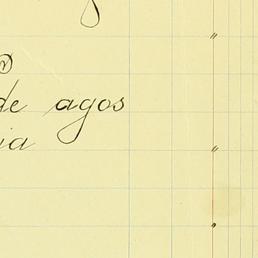 de agos
ia